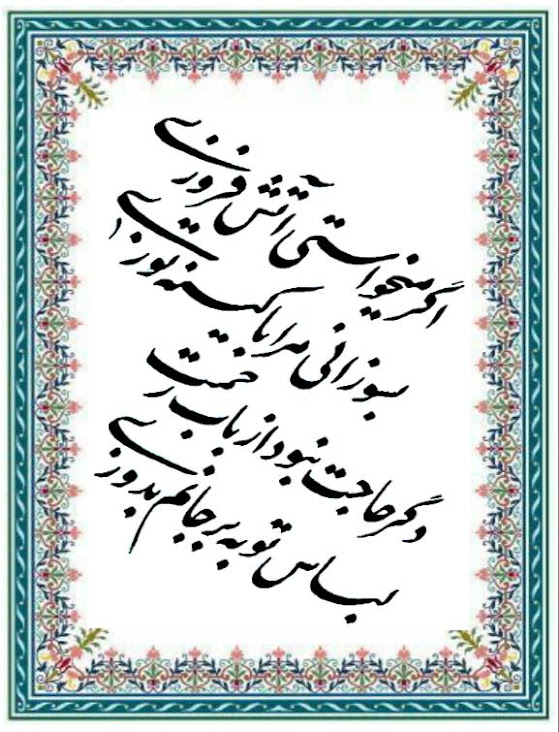 اگر میخواستی آتش فروزی
بسوزانی مرا با کینه توزی
دگر حاجت نبود از باب رحمت
لباس توبه بر جانم بدوزی